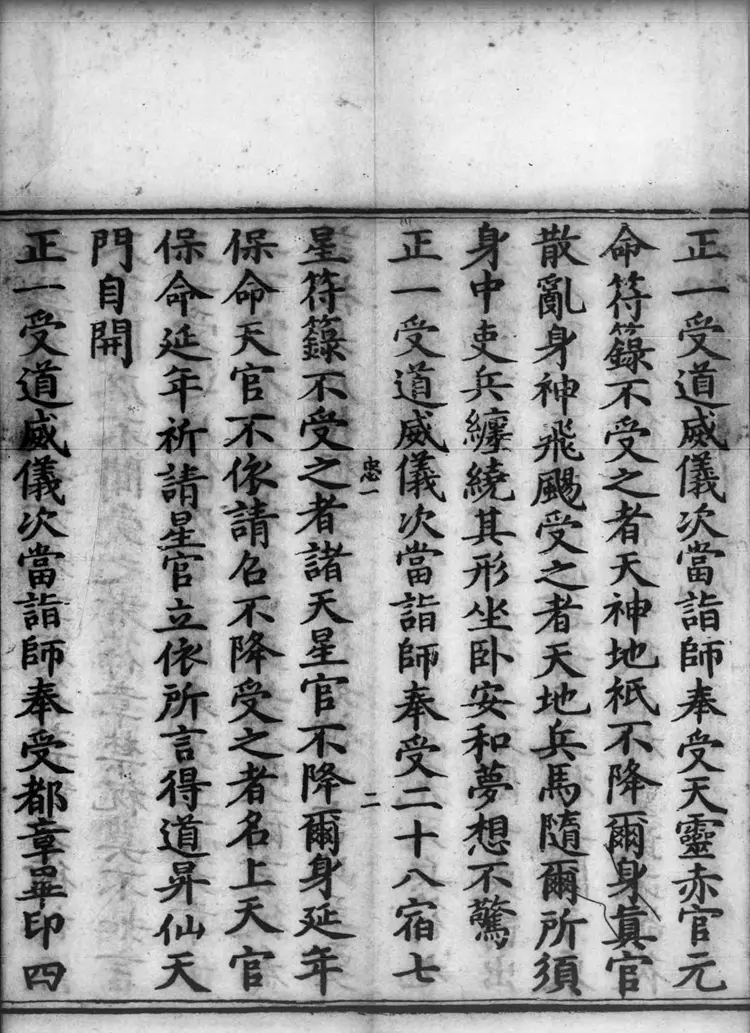 正一受道威儀次當詣師奉受天靈赤官元
命符籙不受之者天神地祇不降爾身真官
散亂身神飛颺受之者天地兵馬隨爾所須
身中吏兵纏繞其形坐卧安和夢想不驚
正一受道威儀次當詣師奉受二十八宿七
忠一 二
星符籙不受之者諸天星官不降爾身延年
保命天官不依請召不降受之者名上天官
保命延年祈請星官立依所言得道昇仙天
門自開
正一受道威儀次當詣師奉受都章畢印四